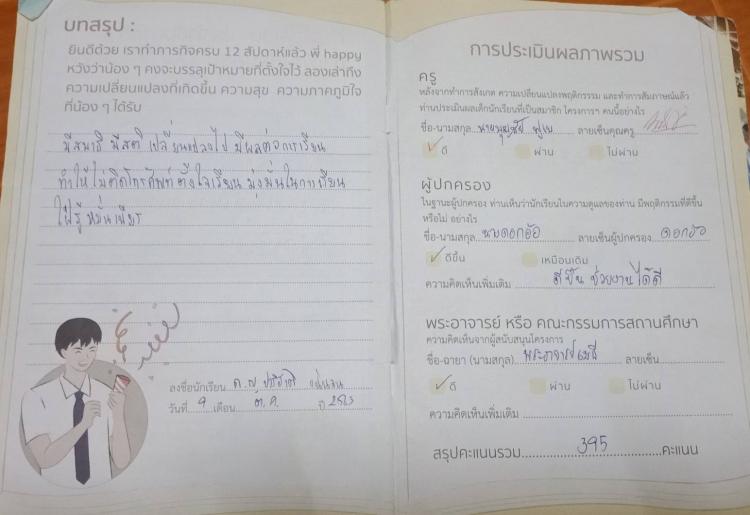 บทสรุป :
ยินดีด้วย เราทำภารกิจครบ 12 สัปดาห์แล้ว พี่ happy
หวังว่าน้อง ๆ คงจะบรรลุเป้าหมายที่ตั้งใจไว้ ลองเล่าถึง
ความเปลี่ยนแปลงที่เกิดขึ้น ความสุข ความภาคภูมิใจ
ที่น้อง ๆ ได้รับ
มีสมาธิ มีสติ เปลี่ยนแปลงไป มีผลต่อการเรียน
ทำให้ไม่ติดโทรศัพท์ ตั้งใจเรียน มุ่งมั่นในการเรียน
ใฝ่รู้ หมั่นเพียร
ลงชื่อนักเรียน ด.ญ
วันที่ 9 เดือน ต.ค. ปี 2563
การประเมินผลภาพรวม
ครู
หลังจากทำการสังเกต ความเปลี่ยนแปลงพฤติกรรม และทำการสัมภาษณ์แล้ว
ท่านประเมินผลเด็กนักเรียนที่เป็นสมาชิก โครงการฯ คนนี้อย่างไร
ชื่อ-นามสกุล นาย ลายเซ็นคุณครู
✓ ดี ผ่าน ไม่ผ่าน
ผู้ปกครอง
ในฐานะผู้ปกครอง ท่านเห็นว่านักเรียนในความดูแลของท่าน มีพฤติกรรมที่ดีขึ้น
หรือไม่ อย่างไร
ชื่อ-นามสกุล ลายเซ็นผู้ปกครอง
✓ ดีขึ้น เหมือนเดิม
ความคิดเห็นเพิ่มเติม ดีขึ้น ช่วยงานได้ดี
พระอาจารย์ หรือ คณะกรรมการสถานศึกษา
ความคิดเห็นจากผู้สนับสนุนโครงการ
ชื่อ-ฉายา (นามสกุล) พระอาจารย์เมธี ลายเซ็น
✓ ดี ผ่าน ไม่ผ่าน
ความคิดเห็นเพิ่มเติม
สรุปคะแนนรวม 395 คะแนน